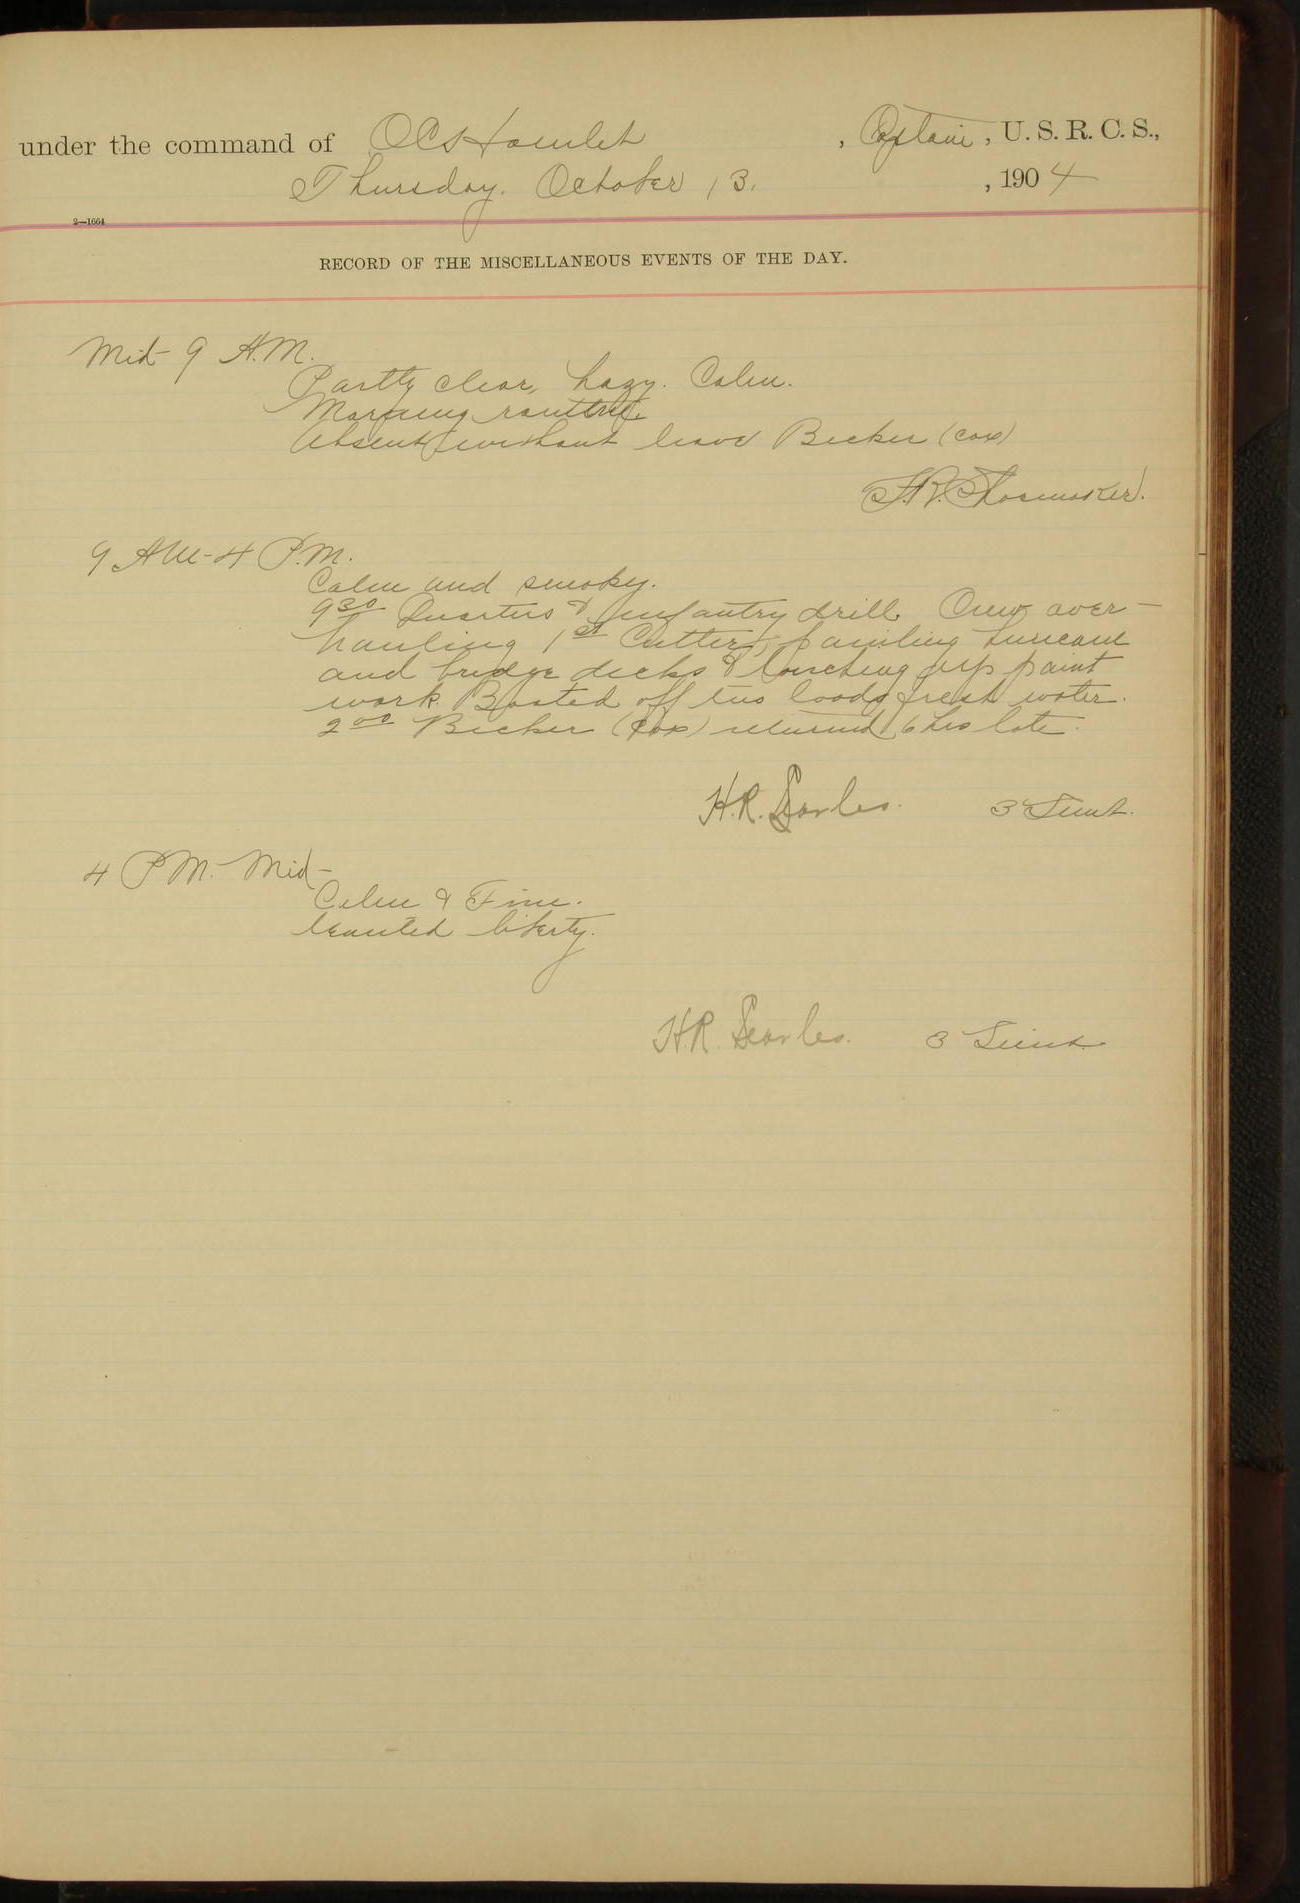 under the command of O C Hamlet , Captain, U. S. R. C. S.,
Thursday. October 13. , 1904
2—1664
RECORD OF THE MISCELLANEOUS EVENTS OF THE DAY.
Mid- 9 A.M.
Partly clear, hazy. Calm.
Morning routine.
Absent without leave Becker (cox)
F.R. Shoemaker.
9 AM- 4 P.M.
Calm and smoky.
9 30 Quarters & Infantry drill. Crew over-
hauling 1st Cutter, painting hurricane
and bridge decks & touching up paint
work. Boated off two loads fresh water.
2 00 Becker (Cox) returned 6 hrs late.
H.R. Searles. 3 Lieut.
4 P.M.- Mid-
Calm & Fine.
Granted liberty.
H.R. Searles. 3 Lieut.